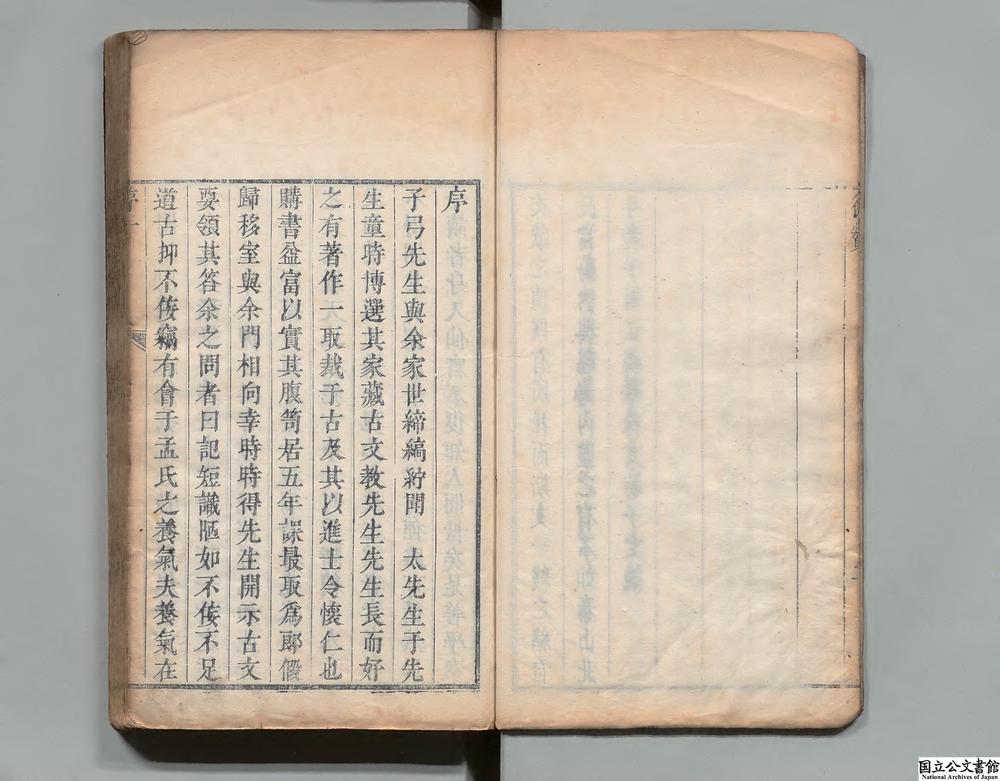 序
子弓先生與余家世締縞紵聞 太先生于先
生童時博選其家藏古文教先生先生長而好
之有著作一取裁于古及其以進士令懷仁也
購書益富以實其腹笥居五年課最取為郎假
歸移室與余門相向幸時時得先生開示古文
要領其答余之問者曰記短識陋如不佞不足
道古抑不佞竊有會于孟氏之養氣夫養氣在
序 一
国立公文書館
National Archives of Japan